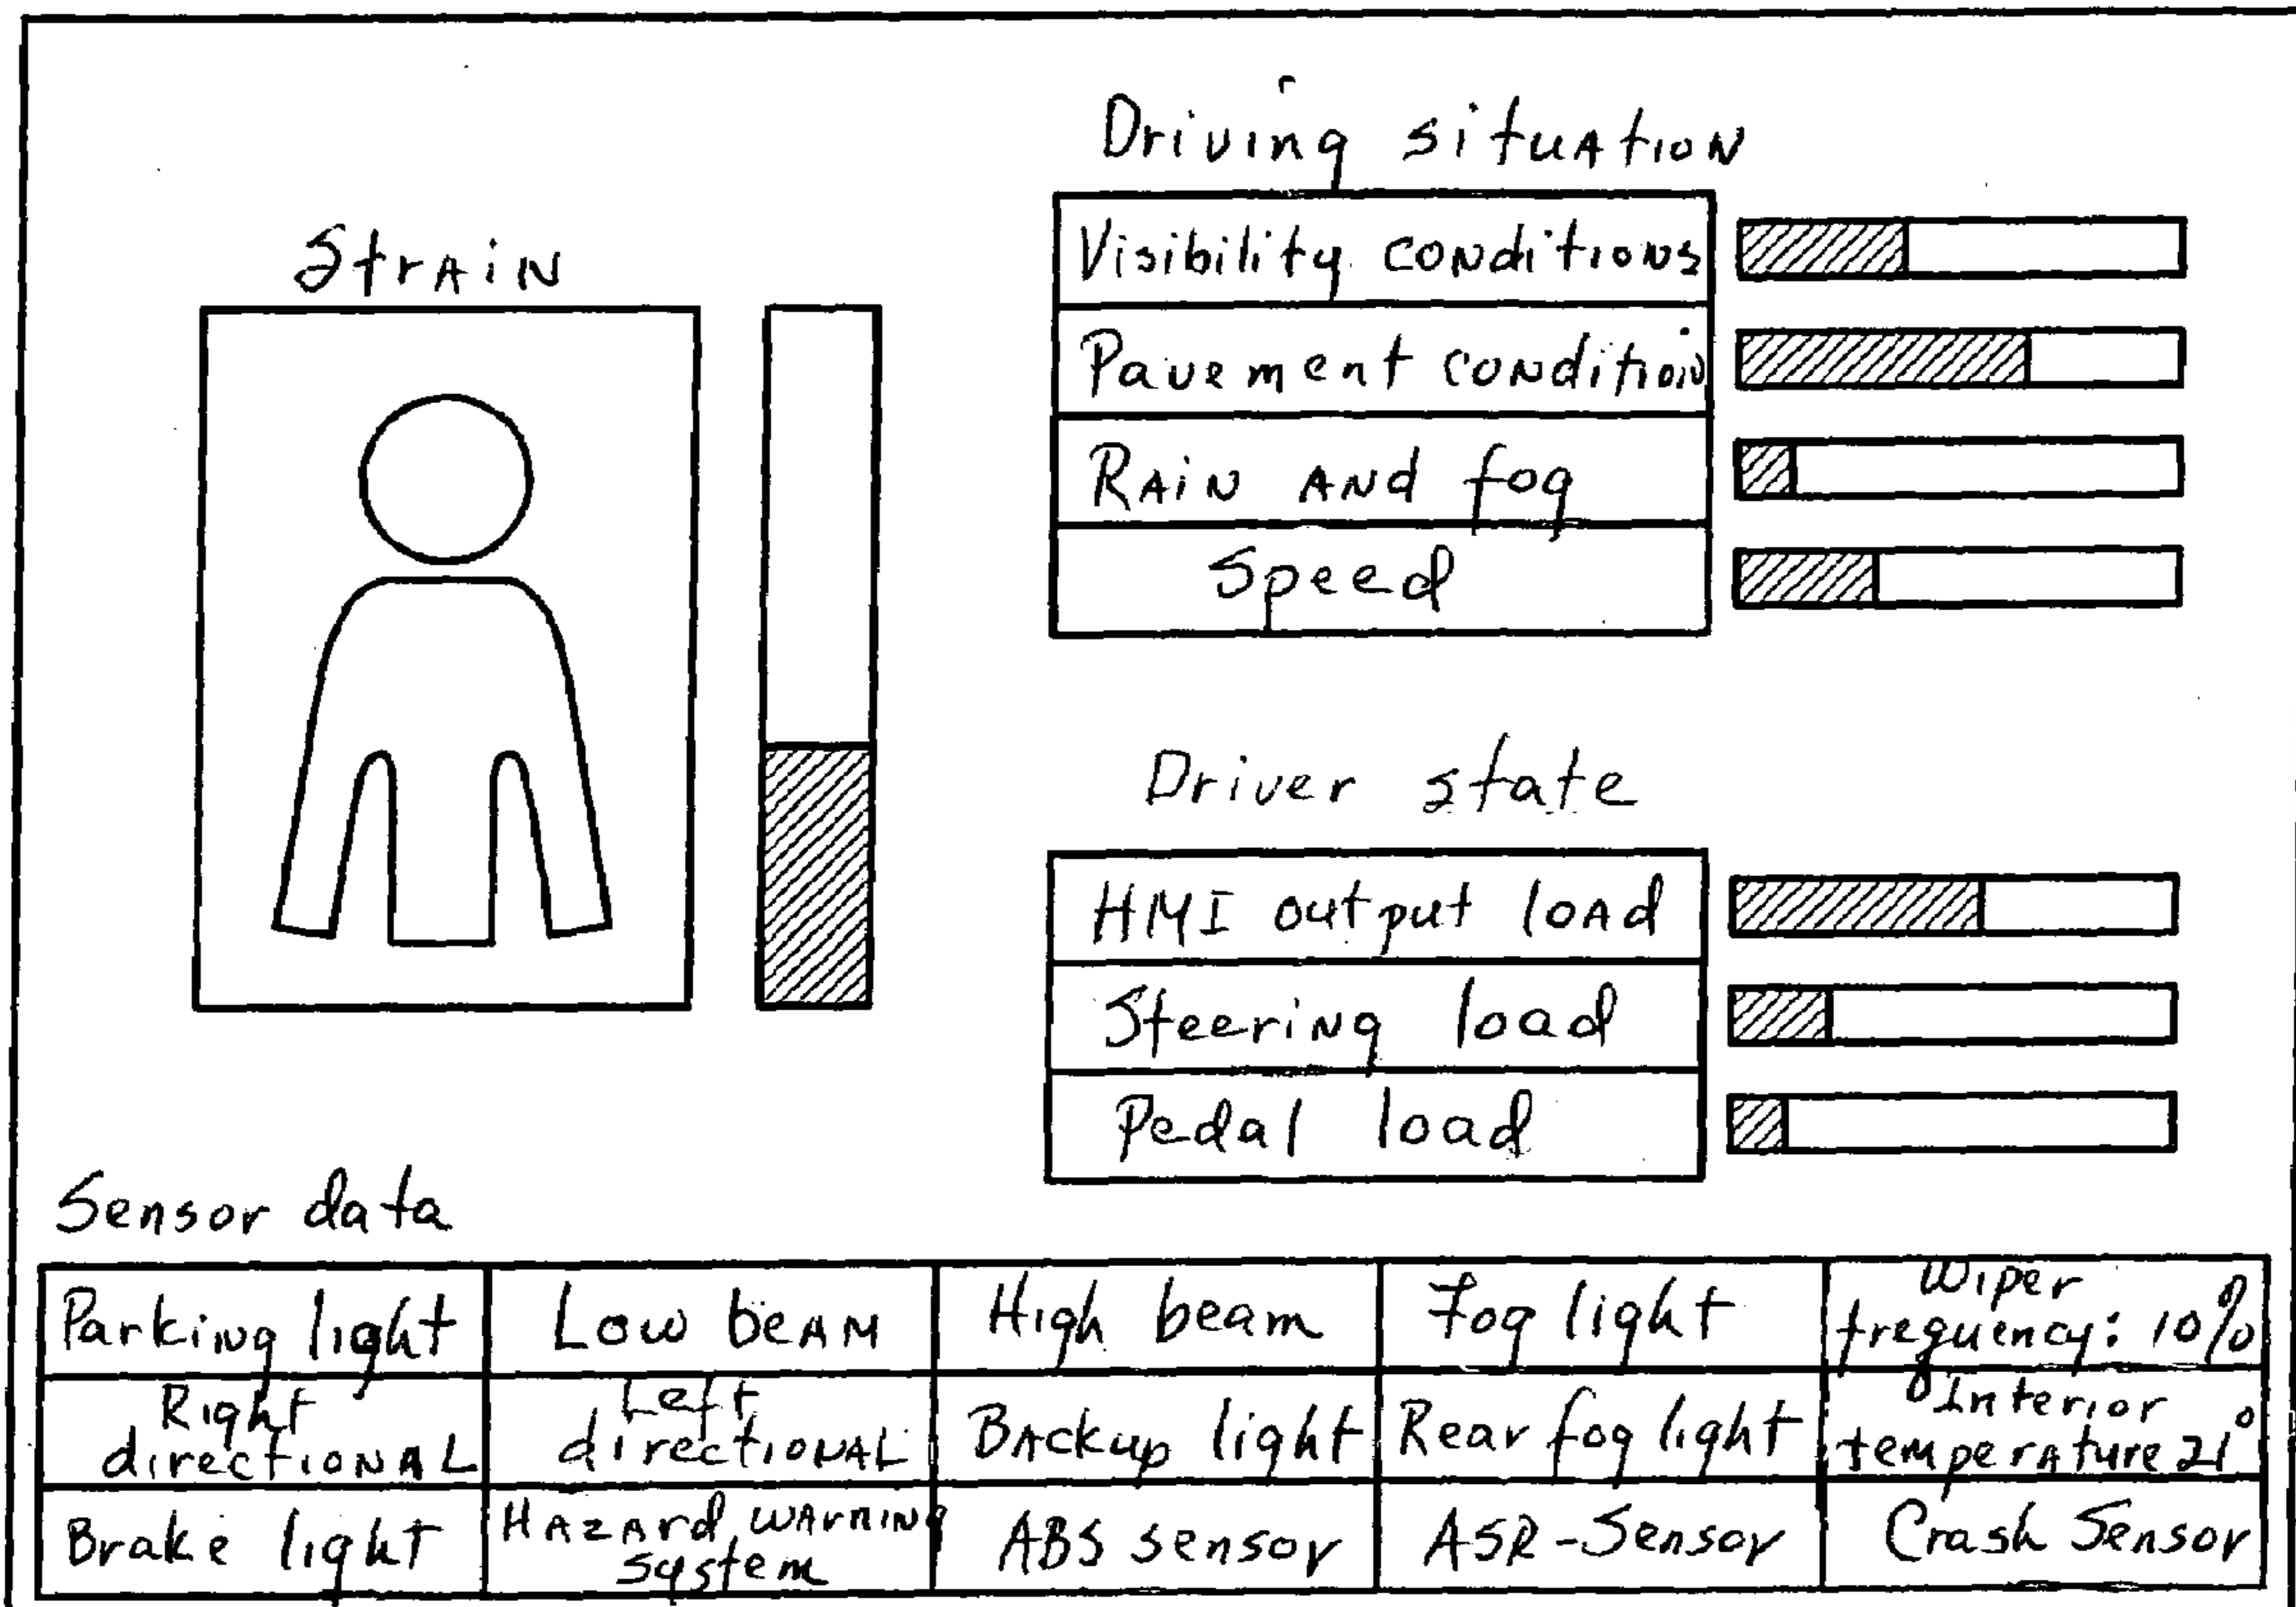 Driving situation
Strain
Visibility conditions
Pavement condition
Rain and fog
Speed
Driver state
HMI output load
Steering load
Pedal load
Sensor data
Parking light
Low beam
High beam
Fog light
Wiper
frequency: 10%
Right
directional
Left
directional
Backup light
Rear fog light
Interior
temperature 21°
Brake light
Hazard warning
system
ABS sensor
ASR-Sensor
Crash Sensor